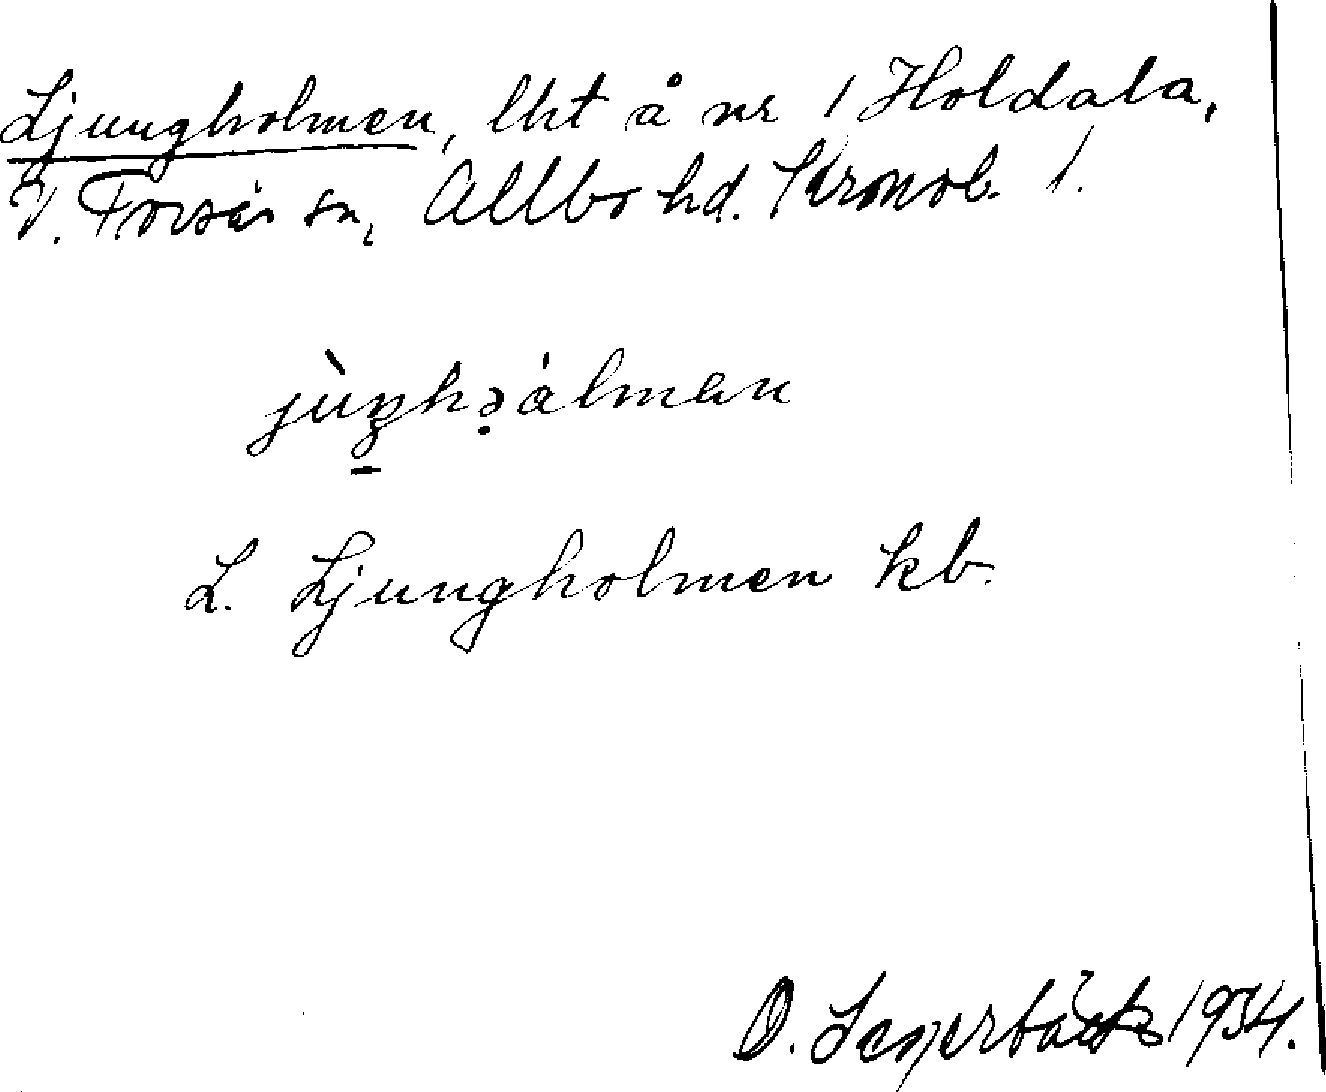 Ljungholmen, lht å nr 1 Holdala,
V. Torsås sn, Allbo hd. Kronob. l.
jùŋhəálman
L. Ljungholmen kb.
O. 1934.